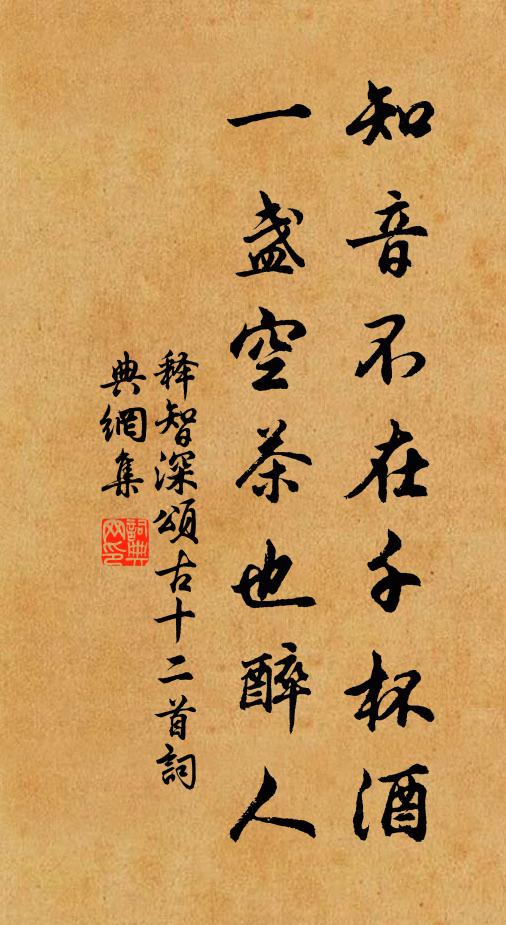 知音不在千杯酒
一盏空茶也醉人
释智深頌古十二首詞
典網集
詞典
网印